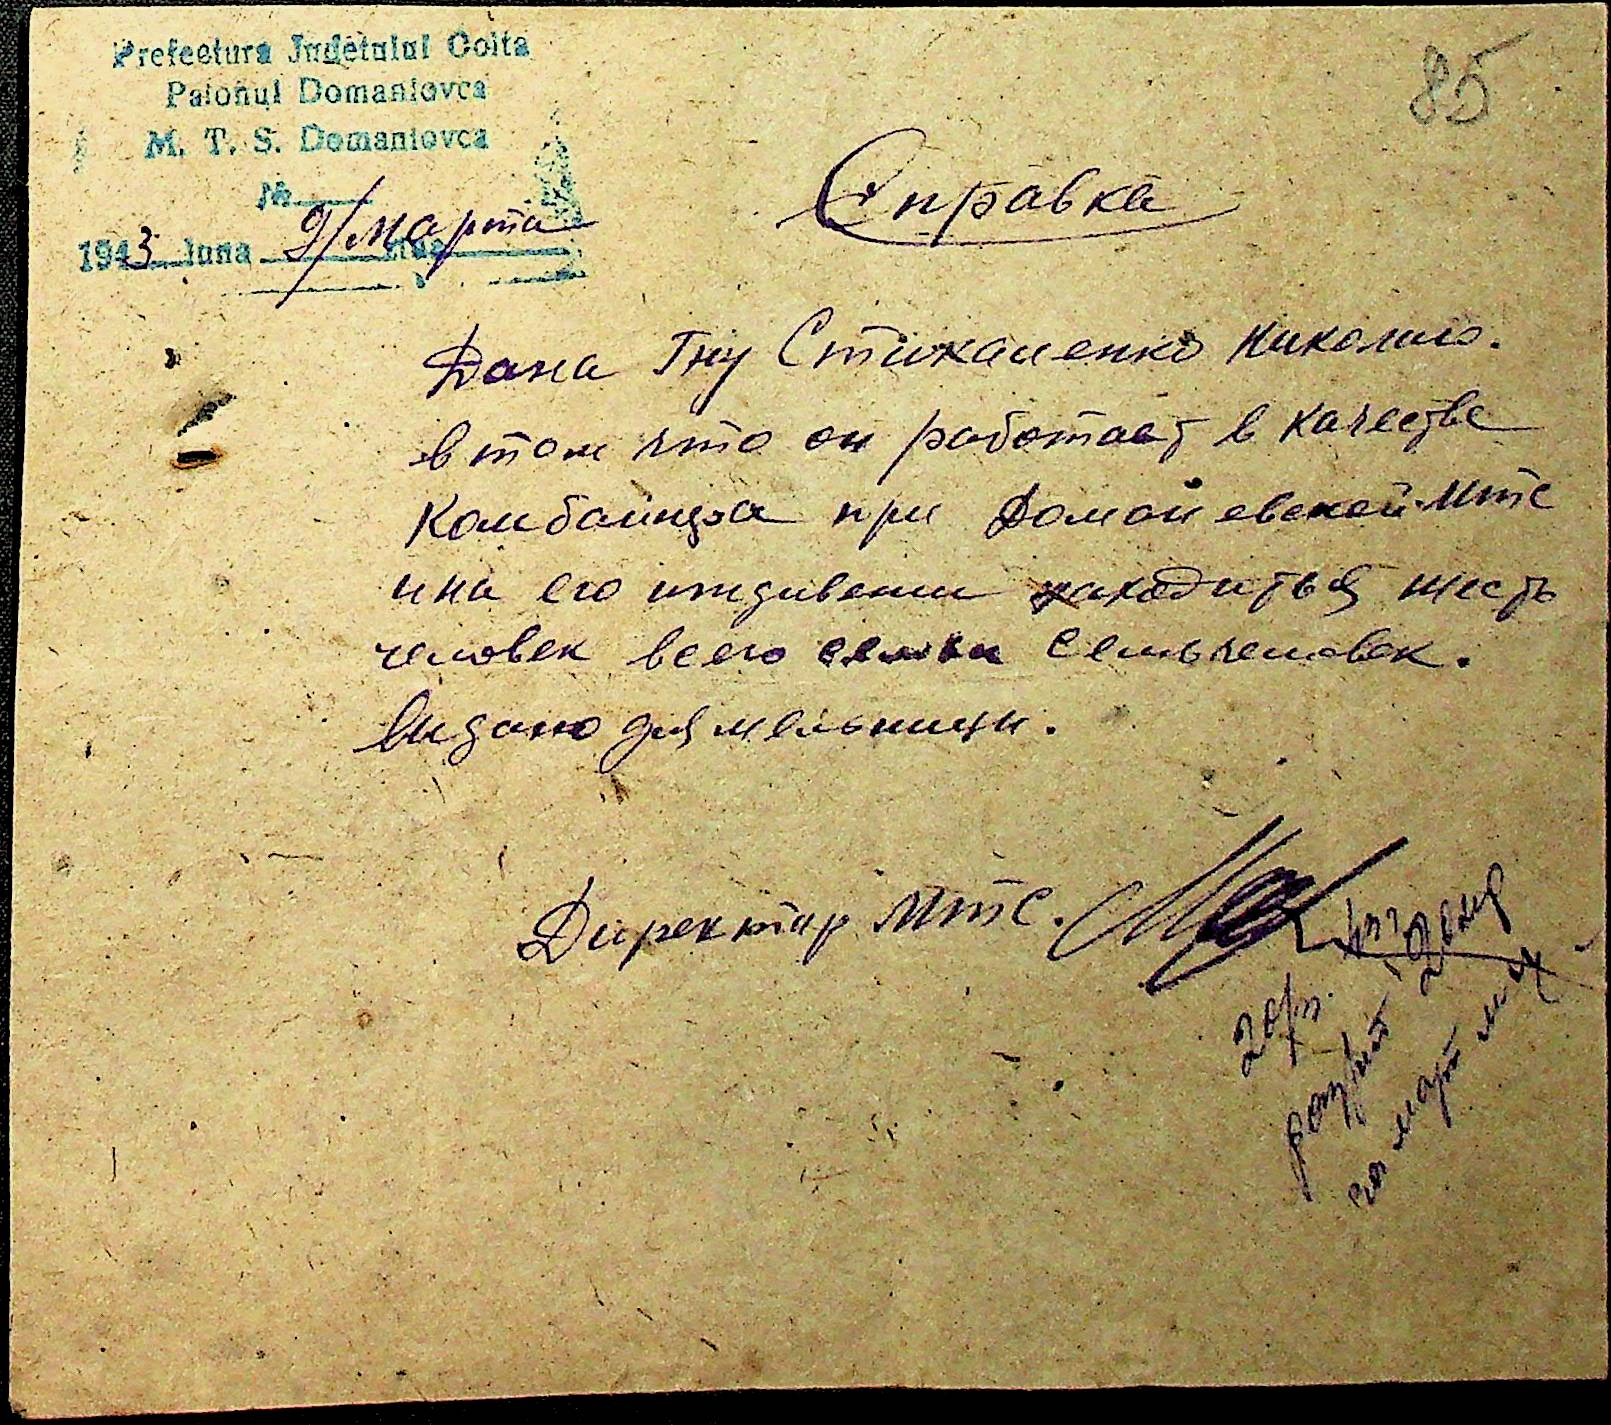 Prefectura Judetului Golta
Raionul Domaniovca
M. T. S. Domaniovca
№
1943 luna 9/Марта ziua
85
Справка
Дана Гну Стихаленко Николаю.
в том что он работает в качестве
Комбайнера при Доманевской МТС
и на его иждивении находиться шесть
человек всего семьи семь человек.
Видано для мельници.
Директар МТС.
за март м-ц